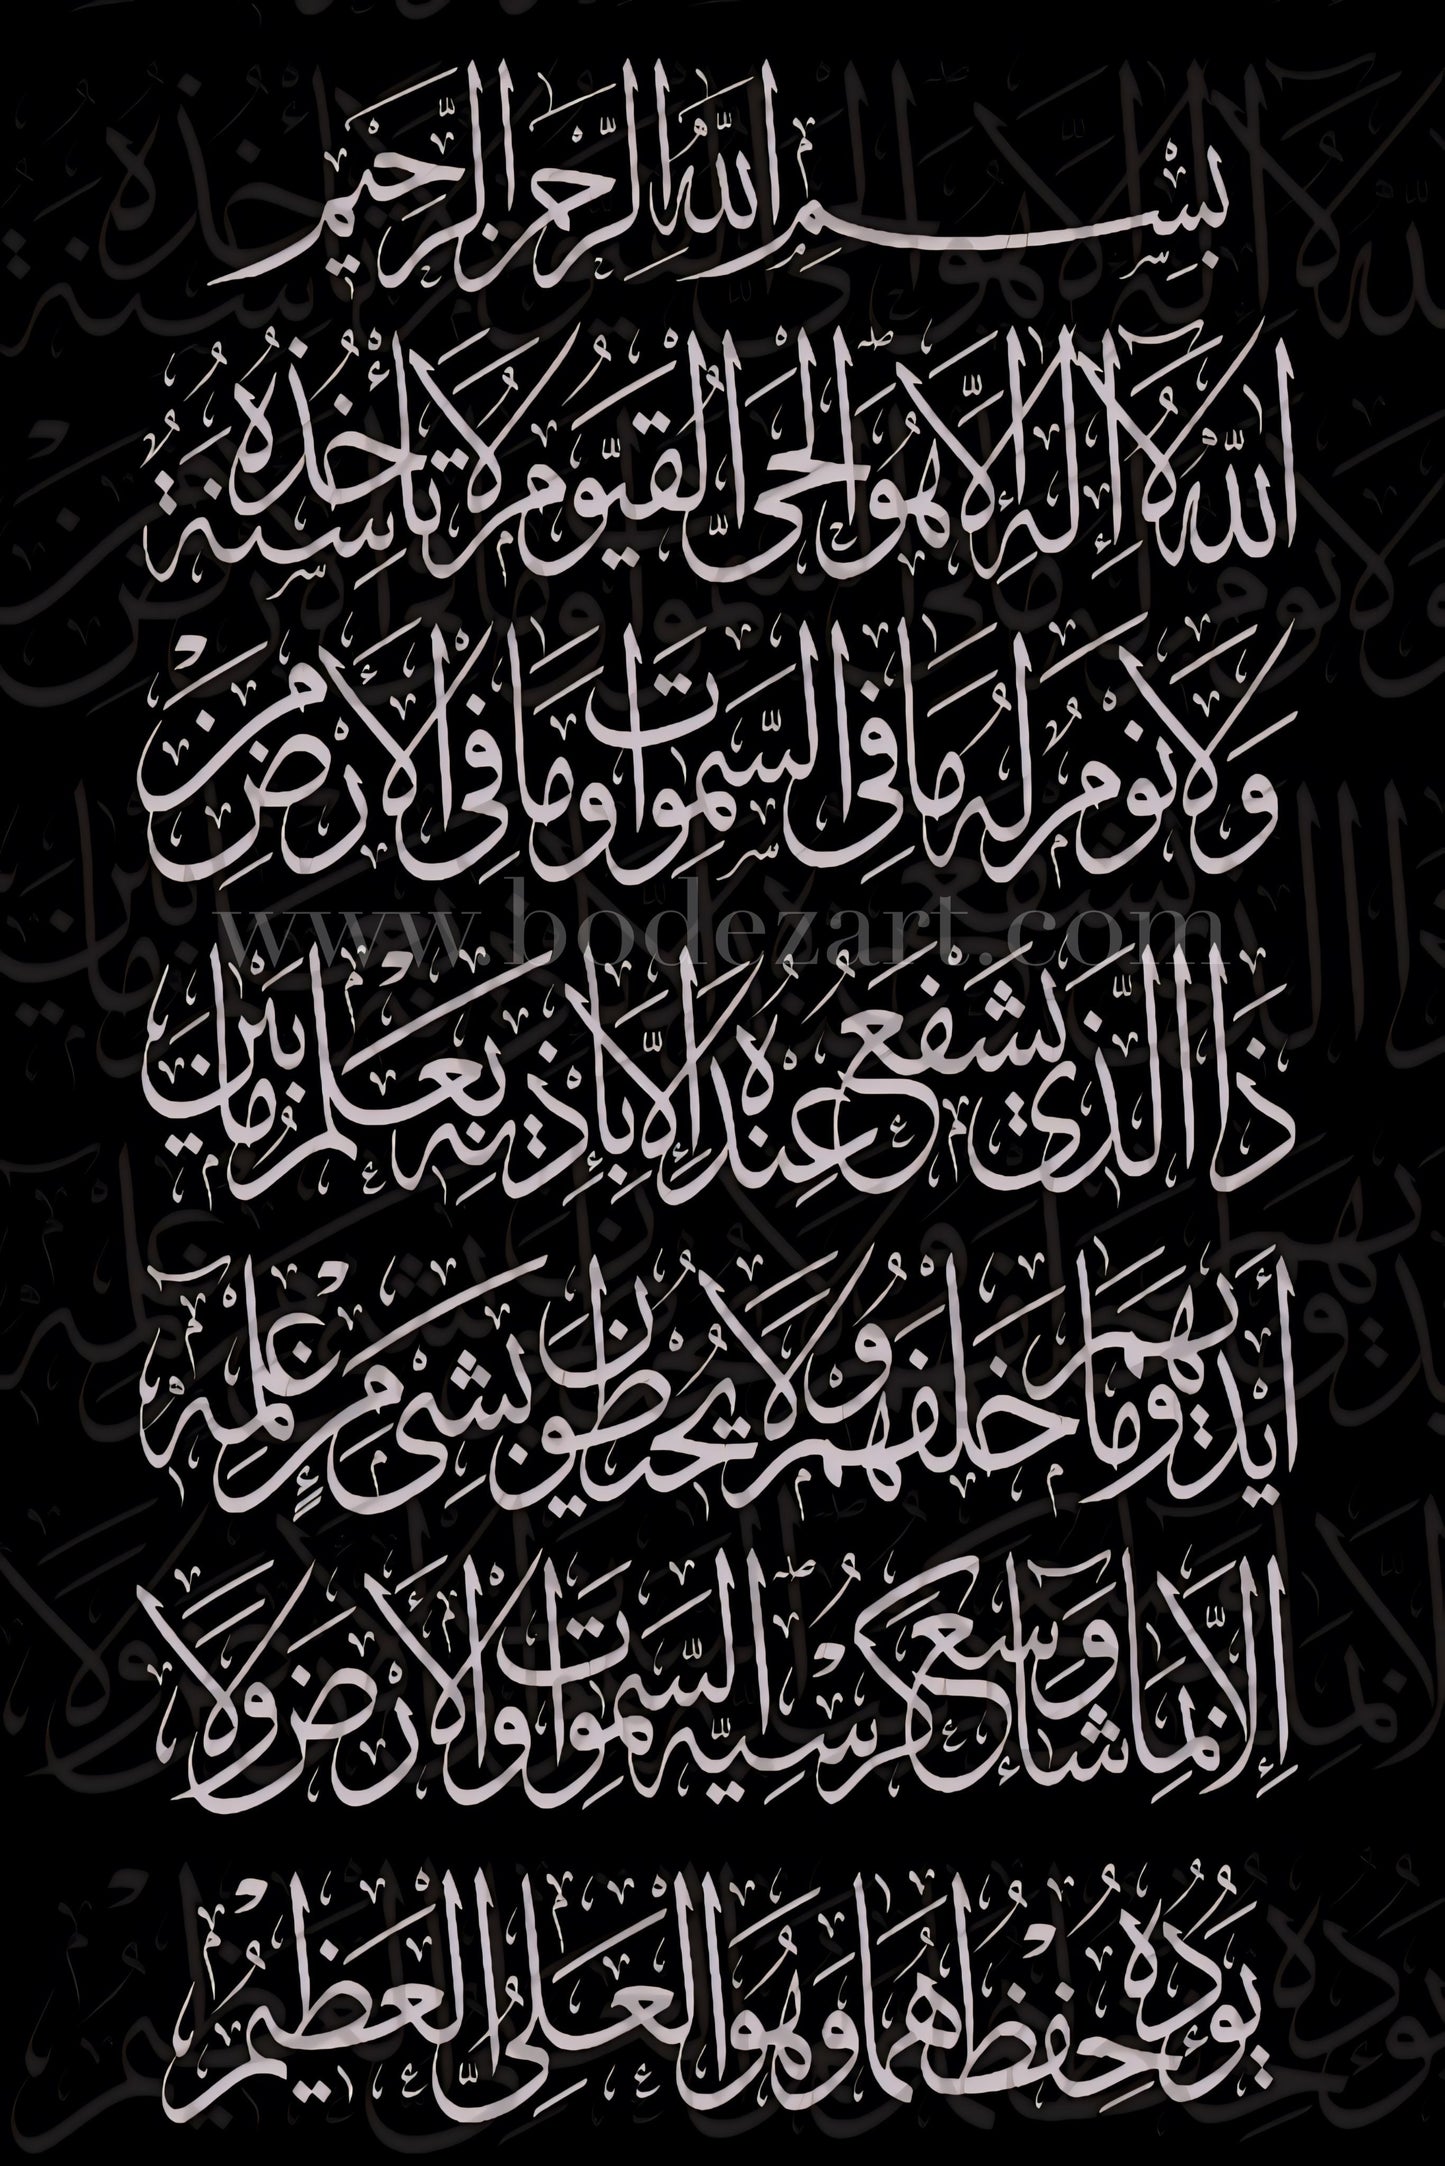 بِسْمِ اللَّهِ الرَّحْمٰنِ الرَّحِيمِ
اللَّهُ لَا إِلٰهَ إِلَّا هُوَ الْحَيُّ الْقَيُّومُ لَا تَأْخُذُهُ سِنَةٌ
وَلَا نَوْمٌ لَهُ مَا فِي السَّمٰوَاتِ وَمَا فِي الْأَرْضِ مَنْ
ذَا الَّذِي يَشْفَعُ عِنْدَهُ إِلَّا بِإِذْنِهِ يَعْلَمُ مَا بَيْنَ
www.bodezart.com
أَيْدِيهِمْ وَمَا خَلْفَهُمْ وَلَا يُحِيطُونَ بِشَيْءٍ مِنْ عِلْمِهِ
إِلَّا بِمَا شَاءَ وَسِعَ كُرْسِيُّهُ السَّمٰوَاتِ وَالْأَرْضَ وَلَا
يَؤُدُهُ حِفْظُهُمَا وَهُوَ الْعَلِيُّ الْعَظِيمُ